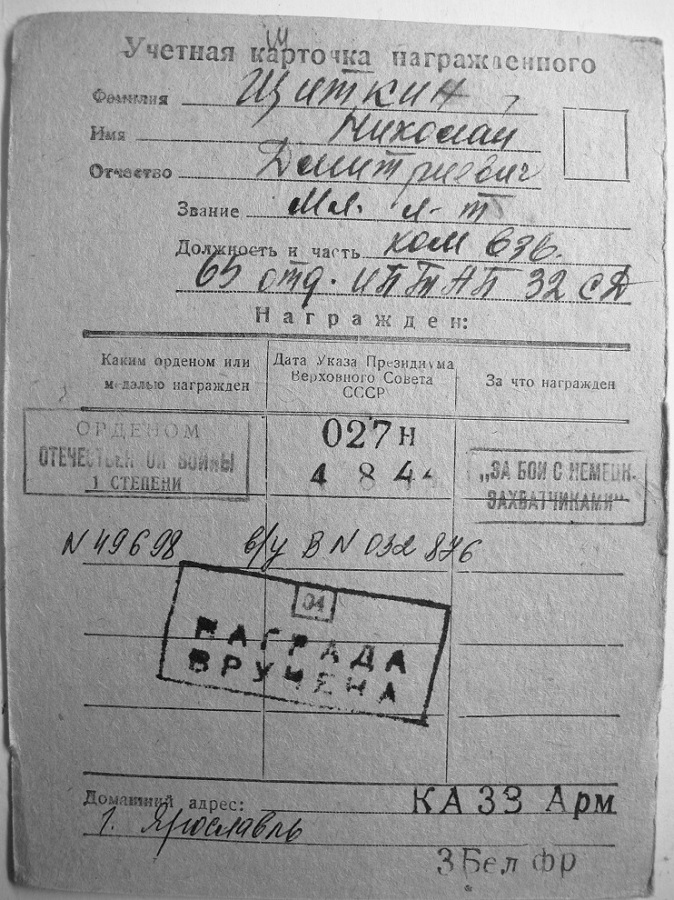 Ш
Учетная карточка награжденного
Фамилия Щиткин
Имя Николай
Отчество Дмитриевич
Звание мл. л-т
Должность и часть ком взв.
65 отд. ИПТАП 32 СД
Награжден:
Каким орденом или медалью награжден
Дата Указа Президиума Верховного Совета СССР
За что награжден
ОРДЕНОМ
ОТЕЧЕСТВЕННОЙ ВОЙНЫ
1 СТЕПЕНИ
027 н
4 8 44
„ЗА БОИ С НЕМЕЦК.
ЗАХВАТЧИКАМИ“
N 49698 в/у В N 032 876
04
НАГРАДА
ВРУЧЕНА
Домашний адрес:
г. Ярославль
КАЗЗ Арм
3 Бел фр